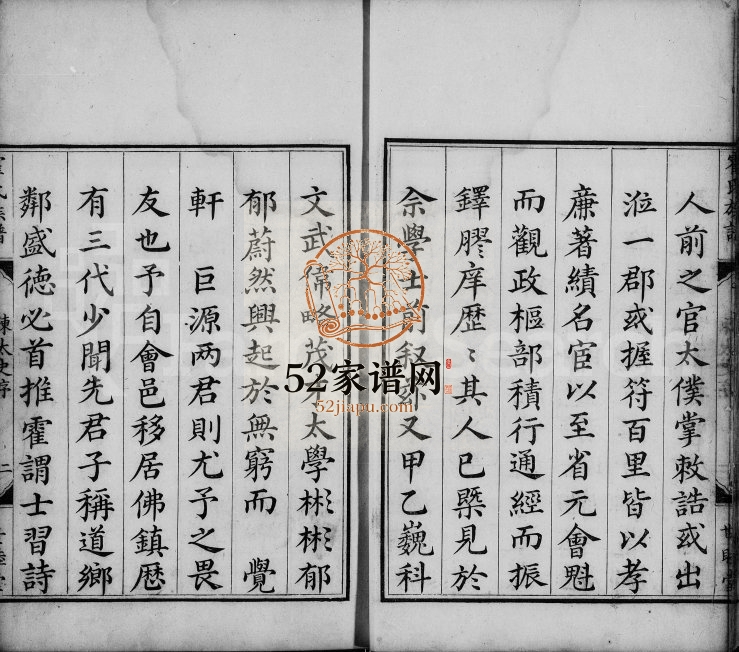 人前之官太僕掌敕誥或出
涖一郡或握符百里皆以孝
亷著績名宦以至省元會魁
而觀政樞部積行通經而振
鐸膠庠歷〻其人已槩見於
佘學士前叙孫又甲乙巍科
文武偉略茂才太學彬彬郁
郁蔚然興起於無窮而　覺
軒　巨源两君則尤予之畏
友也予自會邑移居佛鎮厯
有三代少聞先君子稱道鄉
鄰盛德必首推霍謂士習詩
陳太史序
二
52家谱网
52jiapu.com